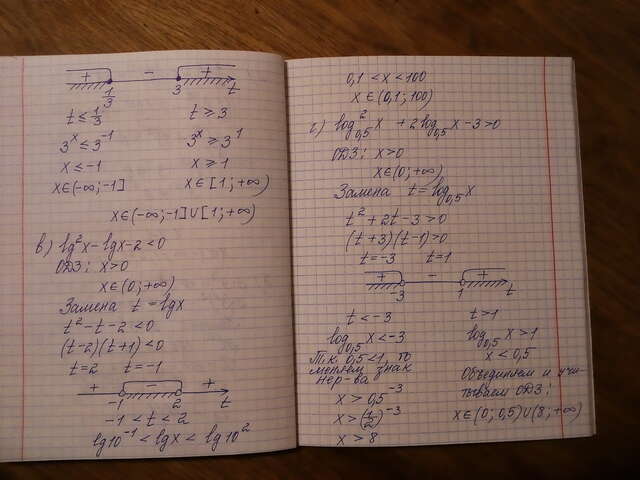 + − +
1/3 3 t
t ≤ 1/3 t ≥ 3
3^x ≤ 3^-1 3^x ≥ 3^1
x ≤ -1 x ≥ 1
x∈(-∞;-1] x∈[1;+∞)
x∈(-∞;-1]∪[1;+∞)
в) lg²x-lgx-2<0
ОДЗ: x>0
x∈(0;+∞)
Замена t=lgx
t²-t-2<0
(t-2)(t+1)<0
t=2 t=-1
+ − +
-1 2 t
-1<t<2
lg10^-1<lgx<lg10^2
0,1<x<100
x∈(0,1;100)
г) log²_0,5 x +2log_0,5 x-3>0
ОДЗ: x>0
x∈(0;+∞)
Замена t=log_0,5 x
t²+2t-3>0
(t+3)(t-1)>0
t=-3 t=1
+ − +
-3 1 t
t<-3 t>1
log_0,5 x<-3 log_0,5 x>1
Т.к. 0,5<1, то
меняем знак
нер-ва
x>0,5^-3
x>(1/2)^-3
x>8
x<0,5
Объединяем и учи-
тываем ОДЗ:
x∈(0;0,5)∪(8;+∞)